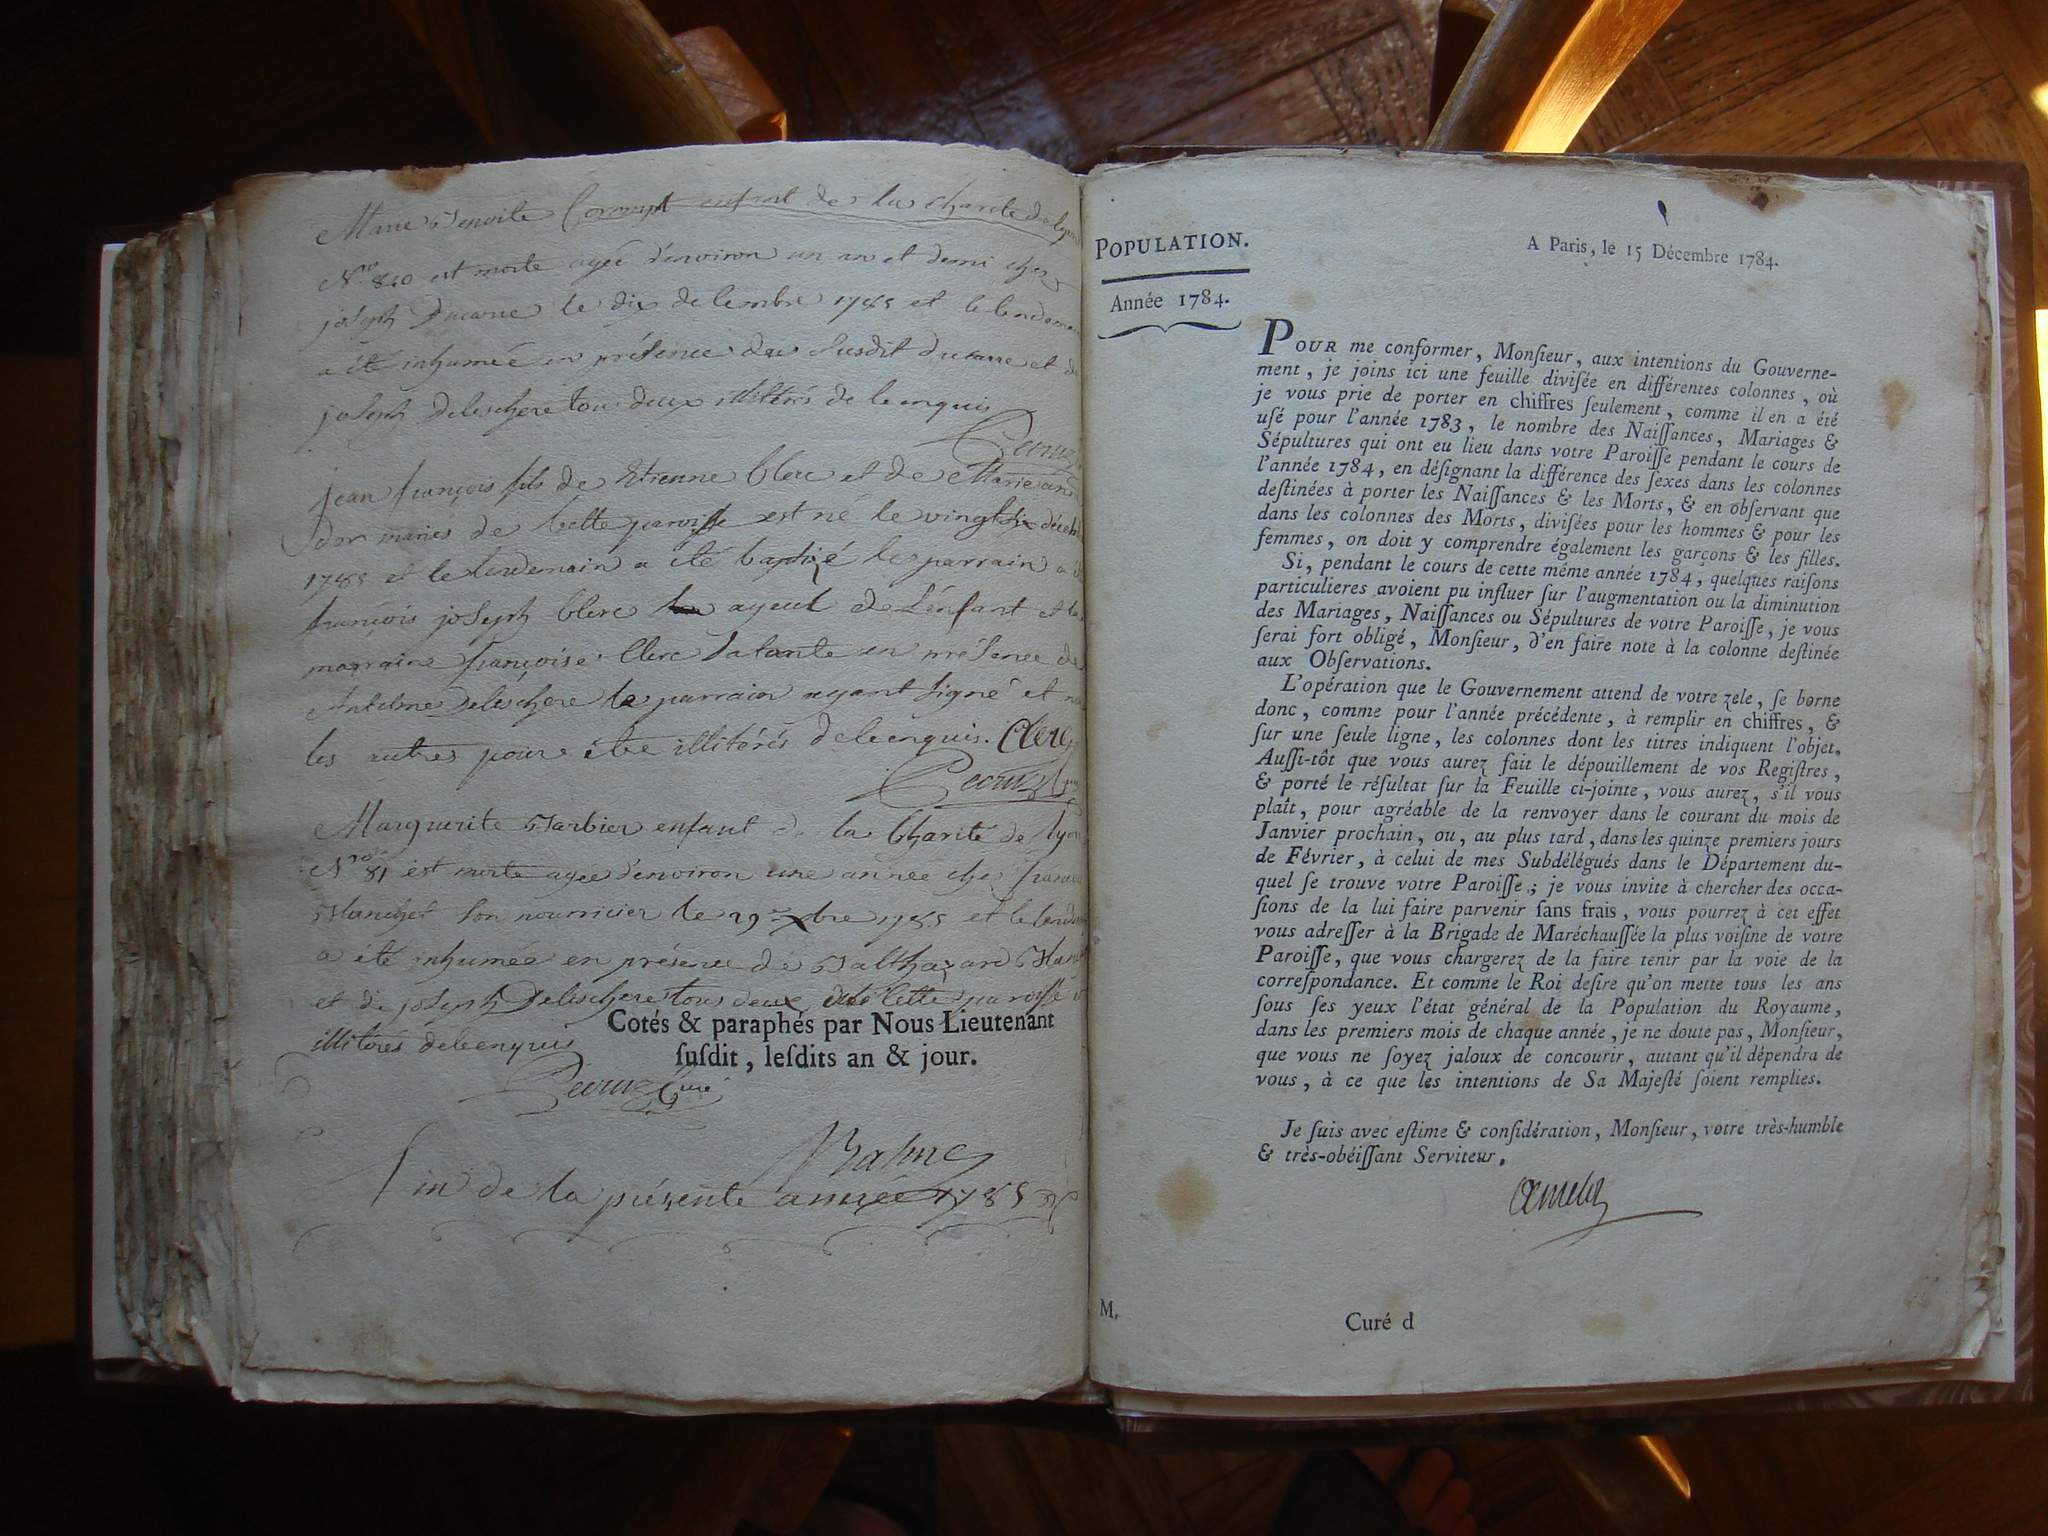 Marie Benoite enfant de la charité de lyon
N.º 810 est morte agée d'environ un an et demi chez
joseph Ducarre le dix decembre 1785 et le lendemain
a été inhumée en présence du susdit ducarre et de
joseph deleschere tous deux illitérés de ce enquis
jean françois fils de Etienne clerc et de Marie
dor mariés de cette paroisse est né le vingt six
1785 et le lendemain a été baptizé le parrain a
françois joseph clerc ayeul de l'enfant et la
marraine françoise clerc sa tante en présence de
Antelme deleschere le parrain ayant signé et non
les autres pour être illitérés de ce enquis. Clerc
Marguerite Barbier enfant de la Charité de lyon
N.º 81 est morte agée d'environ une année chez
son nourricier le 29 xbre 1785 et le
a été inhumée en présence de Balthazard
et de joseph Deleschere tous deux de cette paroisse
illiterés de ce enquis
Cotés & paraphés par Nous Lieutenant
ſuſdit, leſdits an & jour.
Curé
fin de la présente année 1785
POPULATION.
Année 1784.
A Paris, le 15 Décembre 1784.
POUR me conformer, Monſieur, aux intentions du Gouverne-
ment, je joins ici une feuille diviſée en différentes colonnes, où
je vous prie de porter en chiffres ſeulement, comme il en a été
uſé pour l'année 1783, le nombre des Naiſſances, Mariages &
Sépultures qui ont eu lieu dans votre Paroiſſe pendant le cours de
l'année 1784, en déſignant la différence des ſexes dans les colonnes
deſtinées à porter les Naiſſances & les Morts, & en obſervant que
dans les colonnes des Morts, diviſées pour les hommes & pour les
femmes, on doit y comprendre également les garçons & les filles.
Si, pendant le cours de cette même année 1784, quelques raiſons
particulieres avoient pu influer ſur l'augmentation ou la diminution
des Mariages, Naiſſances ou Sépultures de votre Paroiſſe, je vous
ſerai fort obligé, Monſieur, d'en faire note à la colonne deſtinée
aux Obſervations.
L'opération que le Gouvernement attend de votre zele, ſe borne
donc, comme pour l'année précédente, à remplir en chiffres, &
ſur une ſeule ligne, les colonnes dont les titres indiquent l'objet.
Auſſi-tôt que vous aurez fait le dépouillement de vos Regiſtres,
& porté le réſultat ſur la Feuille ci-jointe, vous aurez, s'il vous
plaît, pour agréable de la renvoyer dans le courant du mois de
Janvier prochain, ou, au plus tard, dans les quinze premiers jours
de Février, à celui de mes Subdélégués dans le Département du-
quel ſe trouve votre Paroiſſe; je vous invite à chercher des occa-
ſions de la lui faire parvenir ſans frais, vous pourrez à cet effet
vous adreſſer à la Brigade de Maréchauſſée la plus voiſine de votre
Paroiſſe, que vous chargerez de la faire tenir par la voie de la
correſpondance. Et comme le Roi deſire qu'on mette tous les ans
ſous ſes yeux l'état général de la Population du Royaume,
dans les premiers mois de chaque année, je ne doute pas, Monſieur,
que vous ne ſoyez jaloux de concourir, autant qu'il dépendra de
vous, à ce que les intentions de Sa Majeſté ſoient remplies.
Je ſuis avec eſtime & conſidération, Monſieur, votre très-humble
& très-obéiſſant Serviteur,
Amelot
M.
Curé d